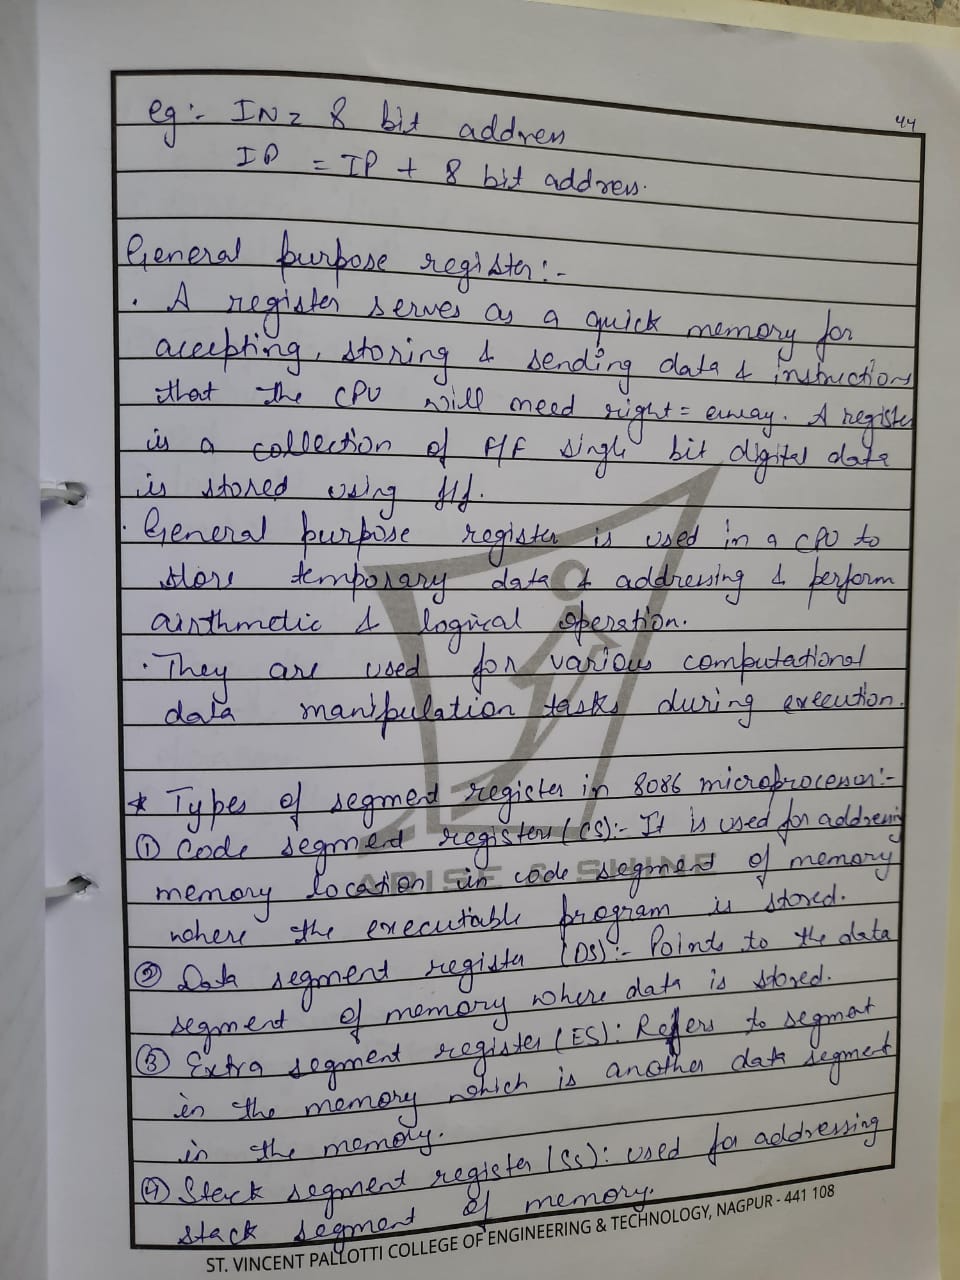 44
eg:- INZ 8 bit address
IP = IP + 8 bit address.
General purpose register:-
. A register serves as a quick memory for
accepting, storing & sending data & instructions
that the CPU will need right = away. A register
is a collection of F/F single bit digital data
is stored using f/f.
. General purpose register is used in a CPU to
store temporary data & addressing & perform
airthmetic & logical operation.
. They are used for various computational
data manipulation tasks during execution.
* Types of segment register in 8086 microprocessor:-
① Code segment registers (CS):- It is used for addressing
memory location in code segment of memory
where the executable program is stored.
② Data segment register (DS):- Points to the data
segment of memory where data is stored.
③ Extra segment register (ES): Refers to segment
in the memory which is another data segment
in the memory.
④ Stack segment register (SS): used for addressing
stack segment of memory.
ARISE & SHINE
ST. VINCENT PALLOTTI COLLEGE OF ENGINEERING & TECHNOLOGY, NAGPUR - 441 108